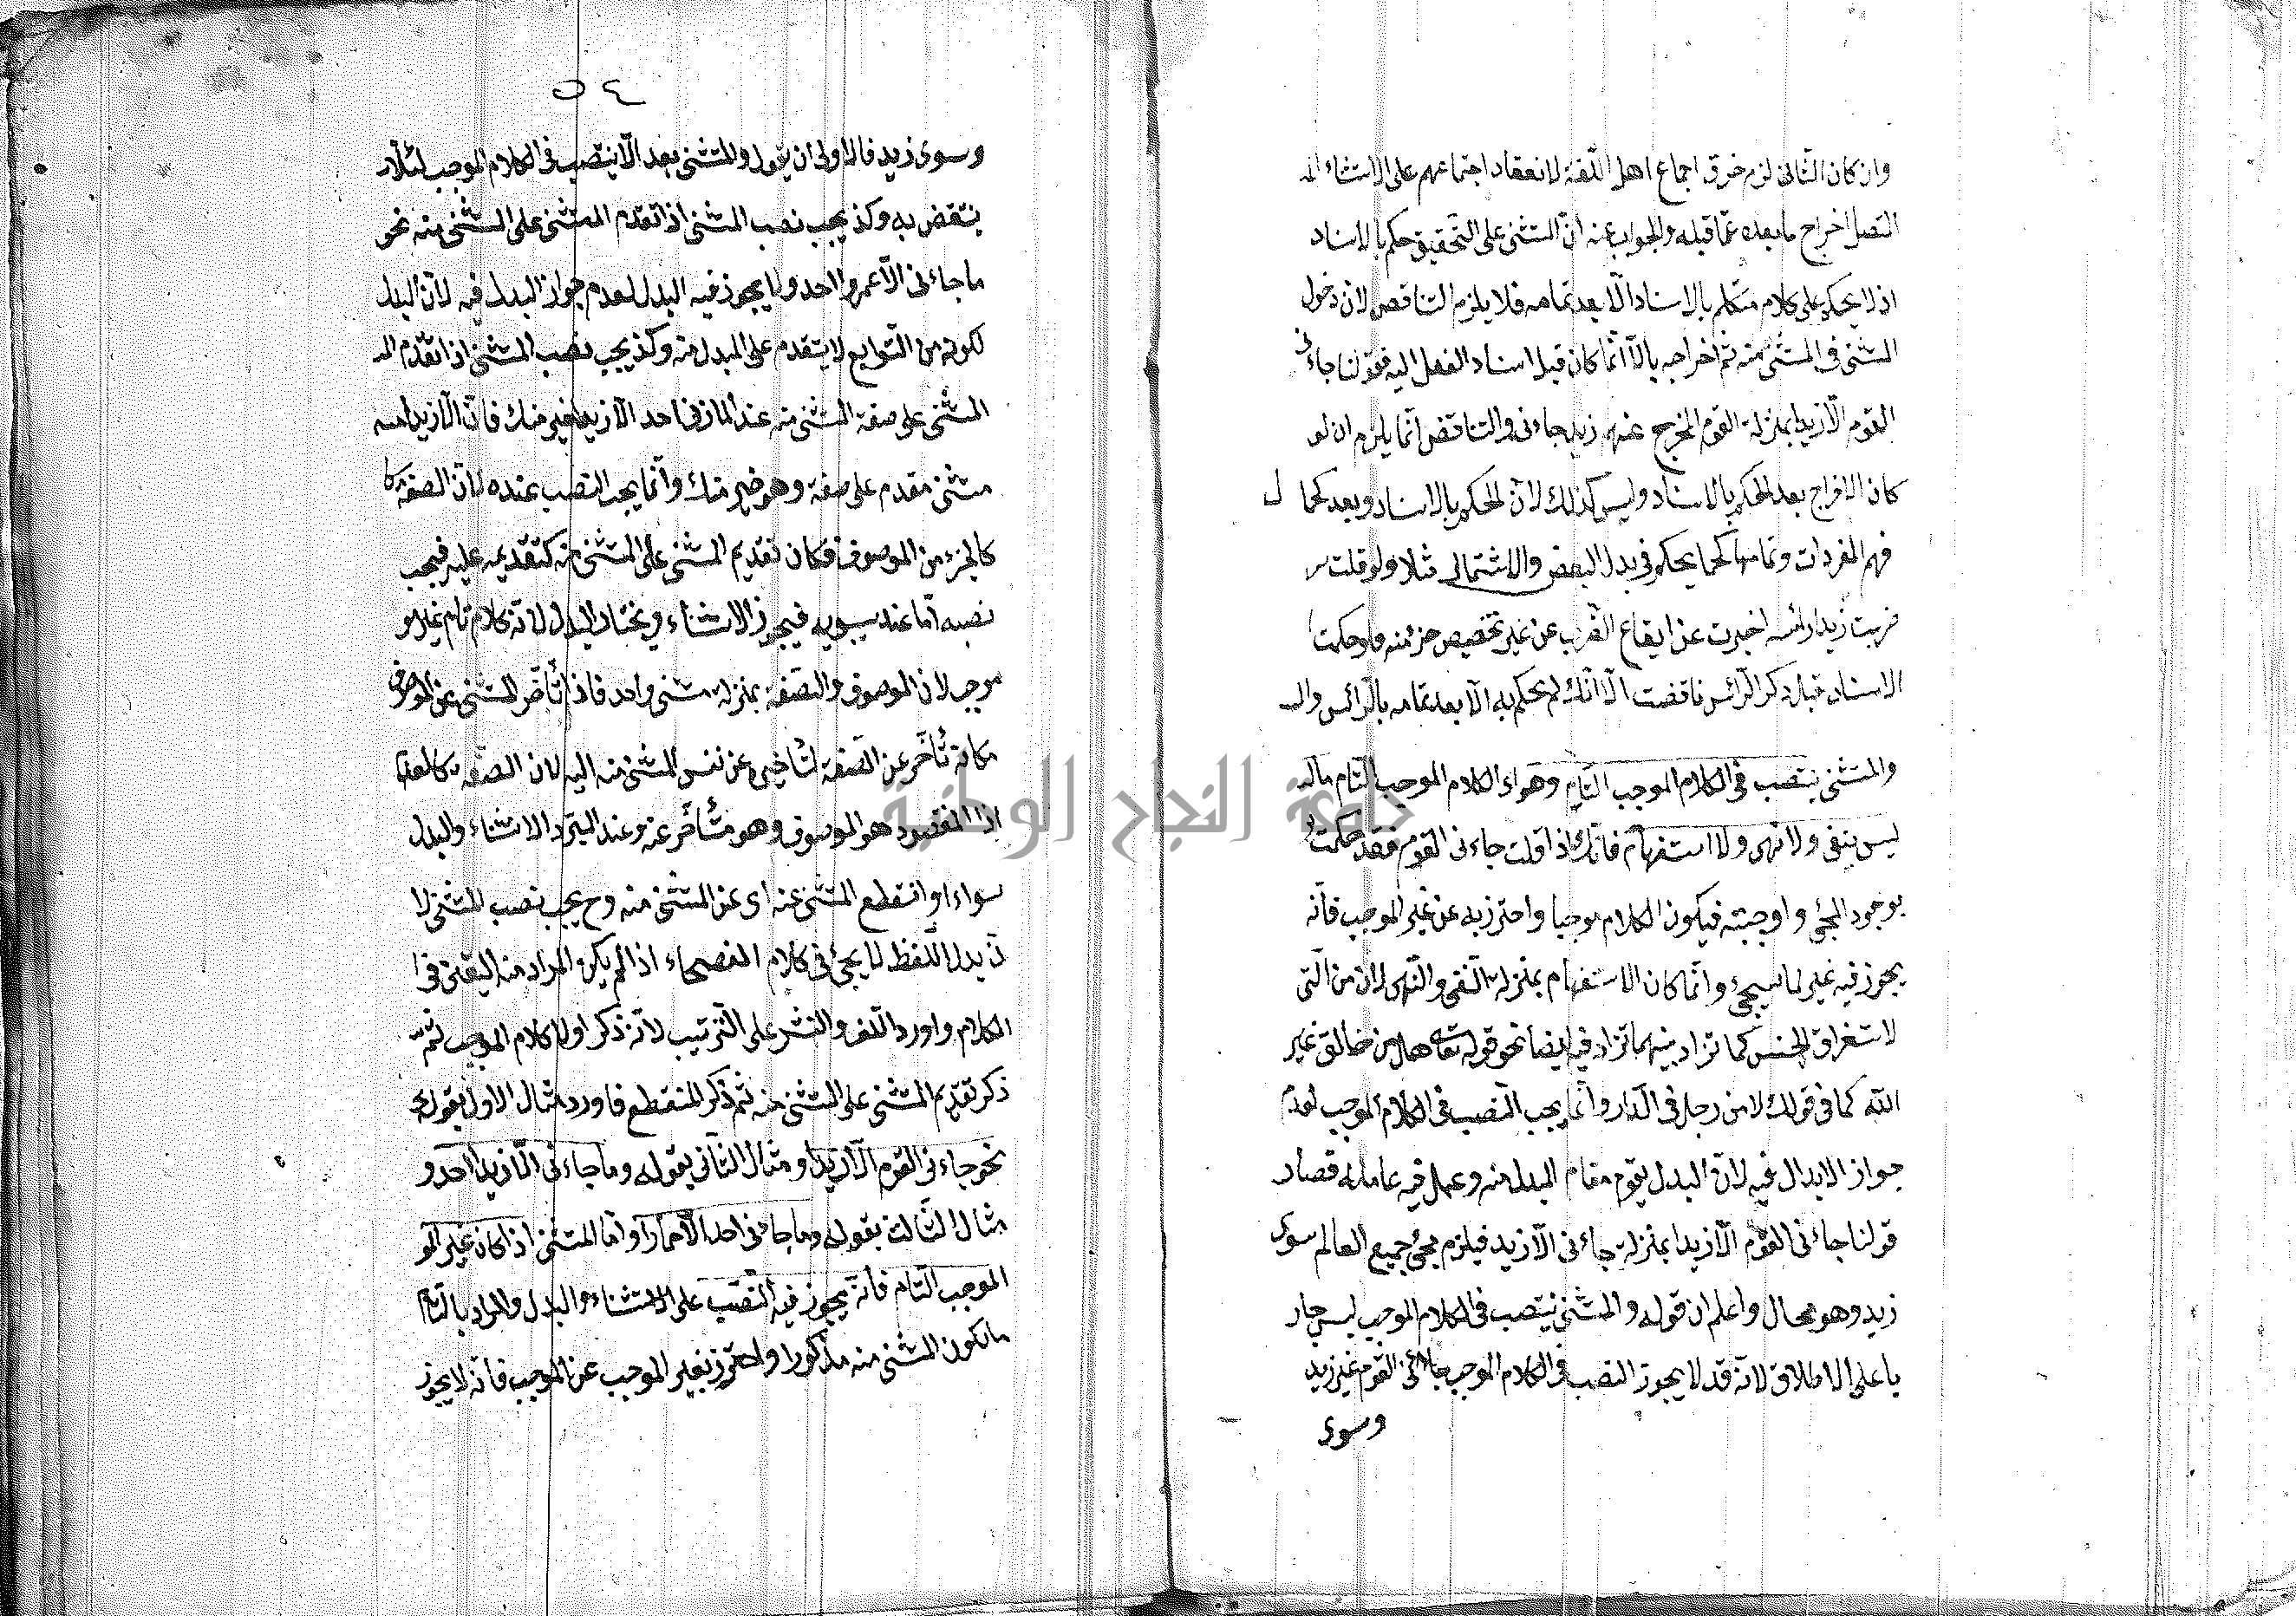 وان كان الثانى لزم خرق اجماع اهل اللغة لانعقاد اجتماعهم على الاستثناء الم
المتصل اخراج ما بعده عما قبله والجواب عنه ان المستثنى على التحقيق حكم بالاسناد
اذ لا يحكم على كلام متكلم بالاسناد الا بعد تمامه فلا يلزم التناقض لان دخول
المستثنى فى المستثنى منه ثم اخراجه بالا انما كان قبل اسناد الفعل اليه فقولنا جاءنى
القوم الا زيدا بمنزلة القوم المخرج عنهم زيد جاءنى والتناقض انما يلزم ان لو
كان الاخراج بعد الحكم بالاسناد وليس كذلك لان الحكم بالاسناد وبعد كمال
فهم المفردات وتمامها كما يحكم فى بدل البعض والاشتمال مثلا ولو قلت
ضربت زيدا رأسه اخبرت عن ايقاع الضرب عن غير تخصيص جزء منه فلو حكمت
الاسناد قبل ذكر الرأس ناقضت الا انك لم يحكم به الا بعد تمامه بالرأس
والمستثنى ينتصب فى الكلام الموجب التام وهو اى الكلام الموجب التام ما
ليس بنفى ولا نهى ولا استفهام فانك اذا قلت جاءنى القوم فقد حكمت
بوجود المجئ واوجبته فيكون الكلام موجبا واحترز به عن غير الموجب فانه
يجوز فيه غير لما سيجئ وانما كان الاستفهام بمنزلة النفى والنهى لان من التى
لاستغراق الجنس كما تزاد بينهما تزاد فيه ايضا نحو قوله تعالى هل من خالق غير
الله كما فى قولك لا من رجل فى الدار وانما يجب النصب فى الكلام الموجب لعدم
جواز الابدال فيه لان البدل يقوم مقام المبدل منه وعمل فيه عامله فصار
قولنا جاءنى القوم الا زيدا بمنزلة جاءنى الا زيد فيلزم مجئ جميع العالم سوى
زيد وهو محال واعلم ان قوله والمستثنى ينتصب فى الكلام الموجب ليس جار
يا على الاطلاق لانه قد لا يجوز النصب فى الكلام الموجب جاءنى القوم غير زيد
وسوى
٥٤
وسوى زيد فالاولى ان يقول والمستثنى بعد الا ينتصب فى الكلام الموجب لئلا
ينتقض به وكذا يجب نصب المستثنى اذا تقدم المستثنى على المستثنى منه نحو
ما جاءنى الا عمروا احد ولا يجوز فيه البدل لعدم جواز البدل فيه لان البدل
لكونه من التوابع لا يتقدم على المبدل منه وكذا يجب نصب المستثنى اذا تقدم الم
المستثنى على صفة المستثنى منه عند المازنى احد الا زيدا خير منك فان الا زيدا
مستثنى مقدم على صفة وهو خير منك وانما يجب النصب عنده لان الصفة
كالجزء من الموصوف فكان تقديم المستثنى على المستثنى منه كتقديمه عليه فيجب
نصبه اما عند سيبويه فيجوز الاستثناء ويختار البدل لانه كلام تام غير
موجب لان الموصوف والصفة بمنزلة مستثنى واحد فاذا تأخر المستثنى عن الموصوف
مكانة تأخر عن الصفة لتأخير عن نفس المستثنى منه اليه لان الصفة كالعدم
اذ المقصود هو الموصوف وهو متأخر عنه وعند المبرد الاستثناء والبدل
سواء او انقطع المستثنى عنه اى عن المستثنى منه وح يجب نصب المستثنى لا
ن بدل اللفظ لا يجئ فى كلام الفصحاء اذا لم يكن المراد منه اليقين
الكلام واورد اللف والنشر على الترتيب لانه ذكر اولا كلام الموجب ثم
ذكر تقديم المستثنى على المستثنى منه ثم ذكر المنقطع فاورد مثال الاول بقوله
نحو جاءنى القوم الا زيدا ومثال الثانى بقوله وما جاءنى الا زيدا احد و
مثال الثالث بقوله وما جاءنى احد الا حمارا واما المستثنى اذا كان غير المو
الموجب التام فانه يجوز فيه النصب على الاستثناء والبدل والمراد بالتام
ما يكون المستثنى منه مذكورا واحترز بغير الموجب عن الموجب فانه لا يجوز
جامعة النجاح الوطنية